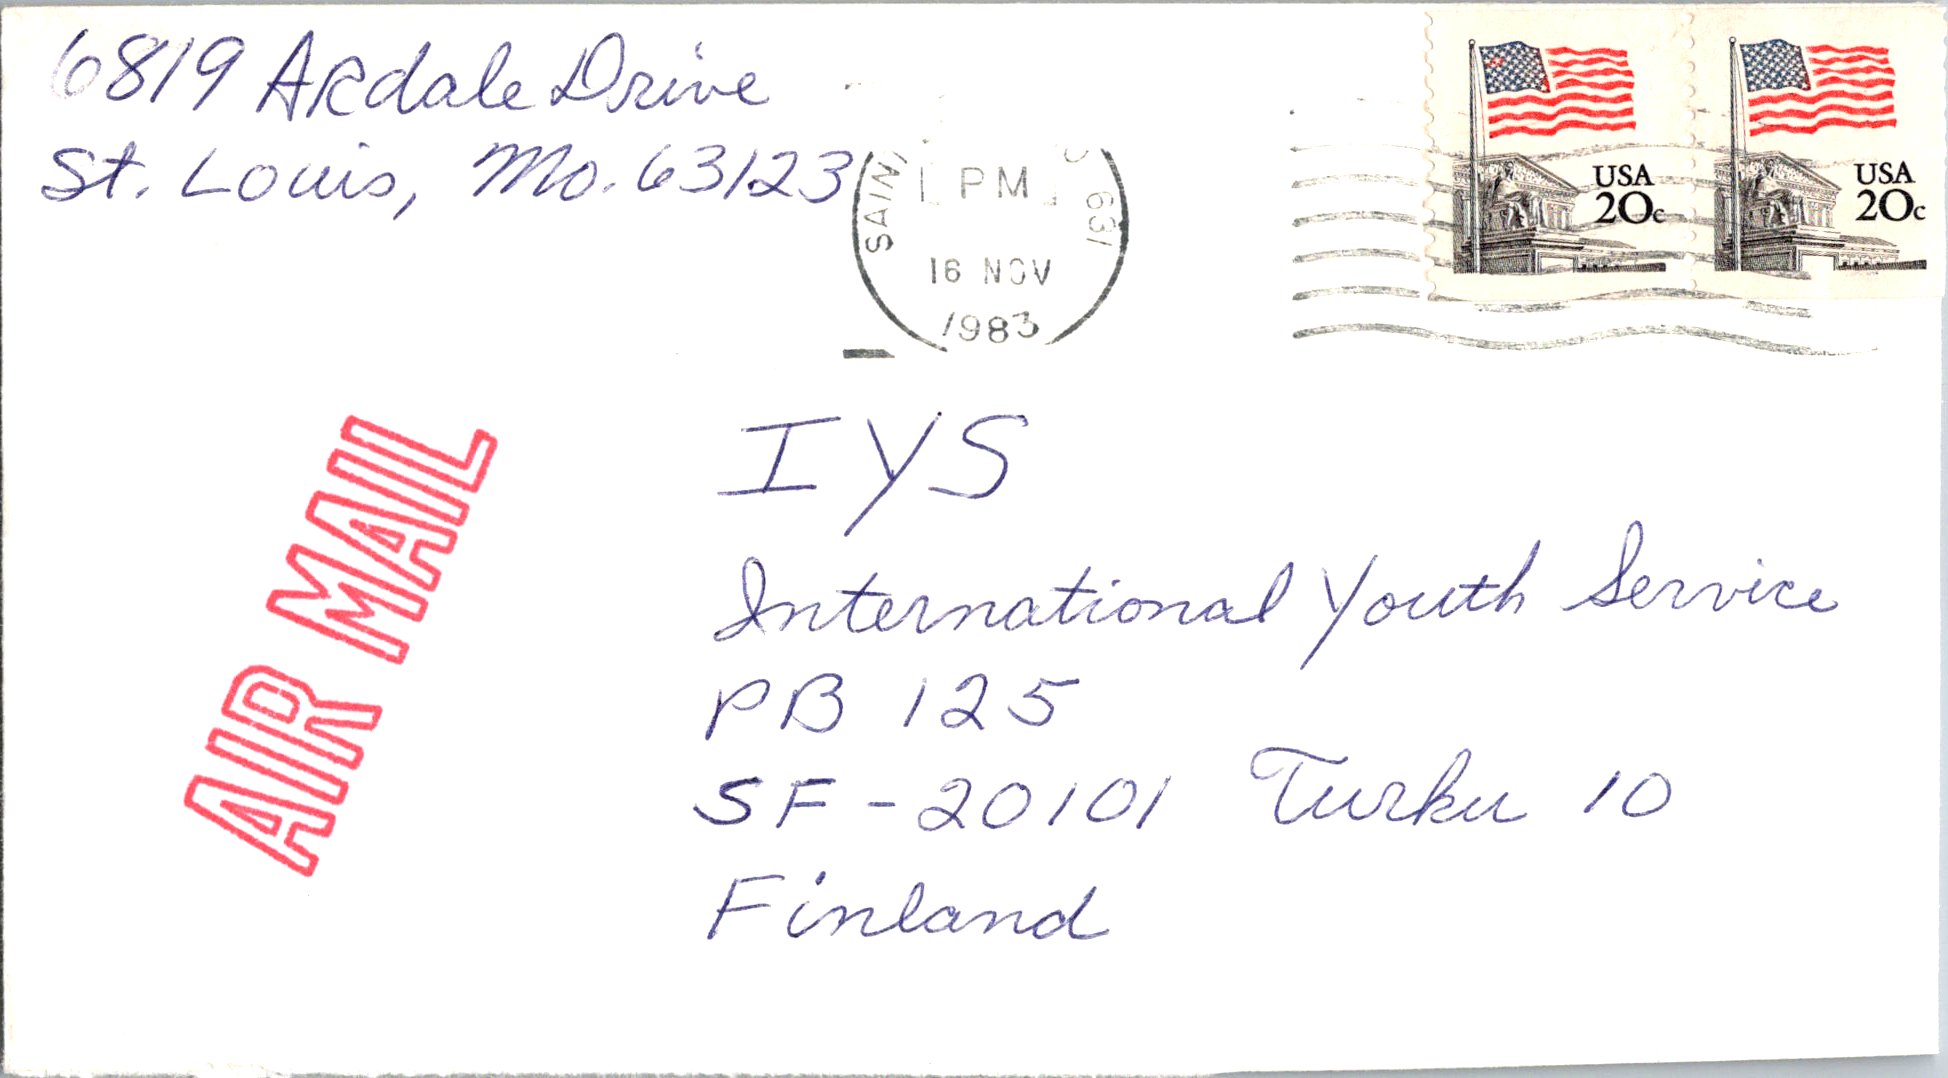 6819 Ardale Drive
St. Louis, Mo. 63123
SAIN
PM
631
16 NOV
1983
USA
20c
USA
20c
AIR MAIL
IYS
International Youth Service
PB 125
SF-20101 Turku 10
Finland